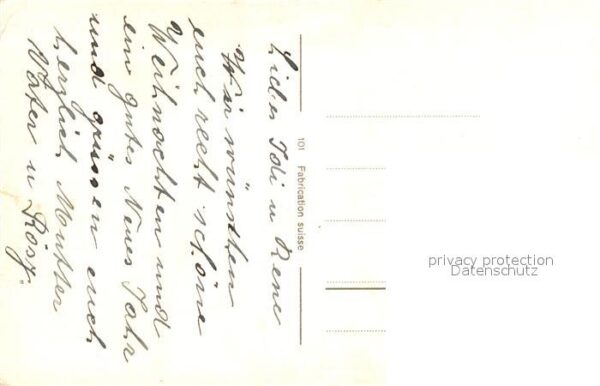 Lieber Idi u Rene
Wir wünschen
euch recht schöne
Weihnachten und
ein gutes Neues Jahr
und grüssen euch
herzlich Mutter
Vater u Rösy.
101 Fabrication suisse
privacy protection
Datenschutz